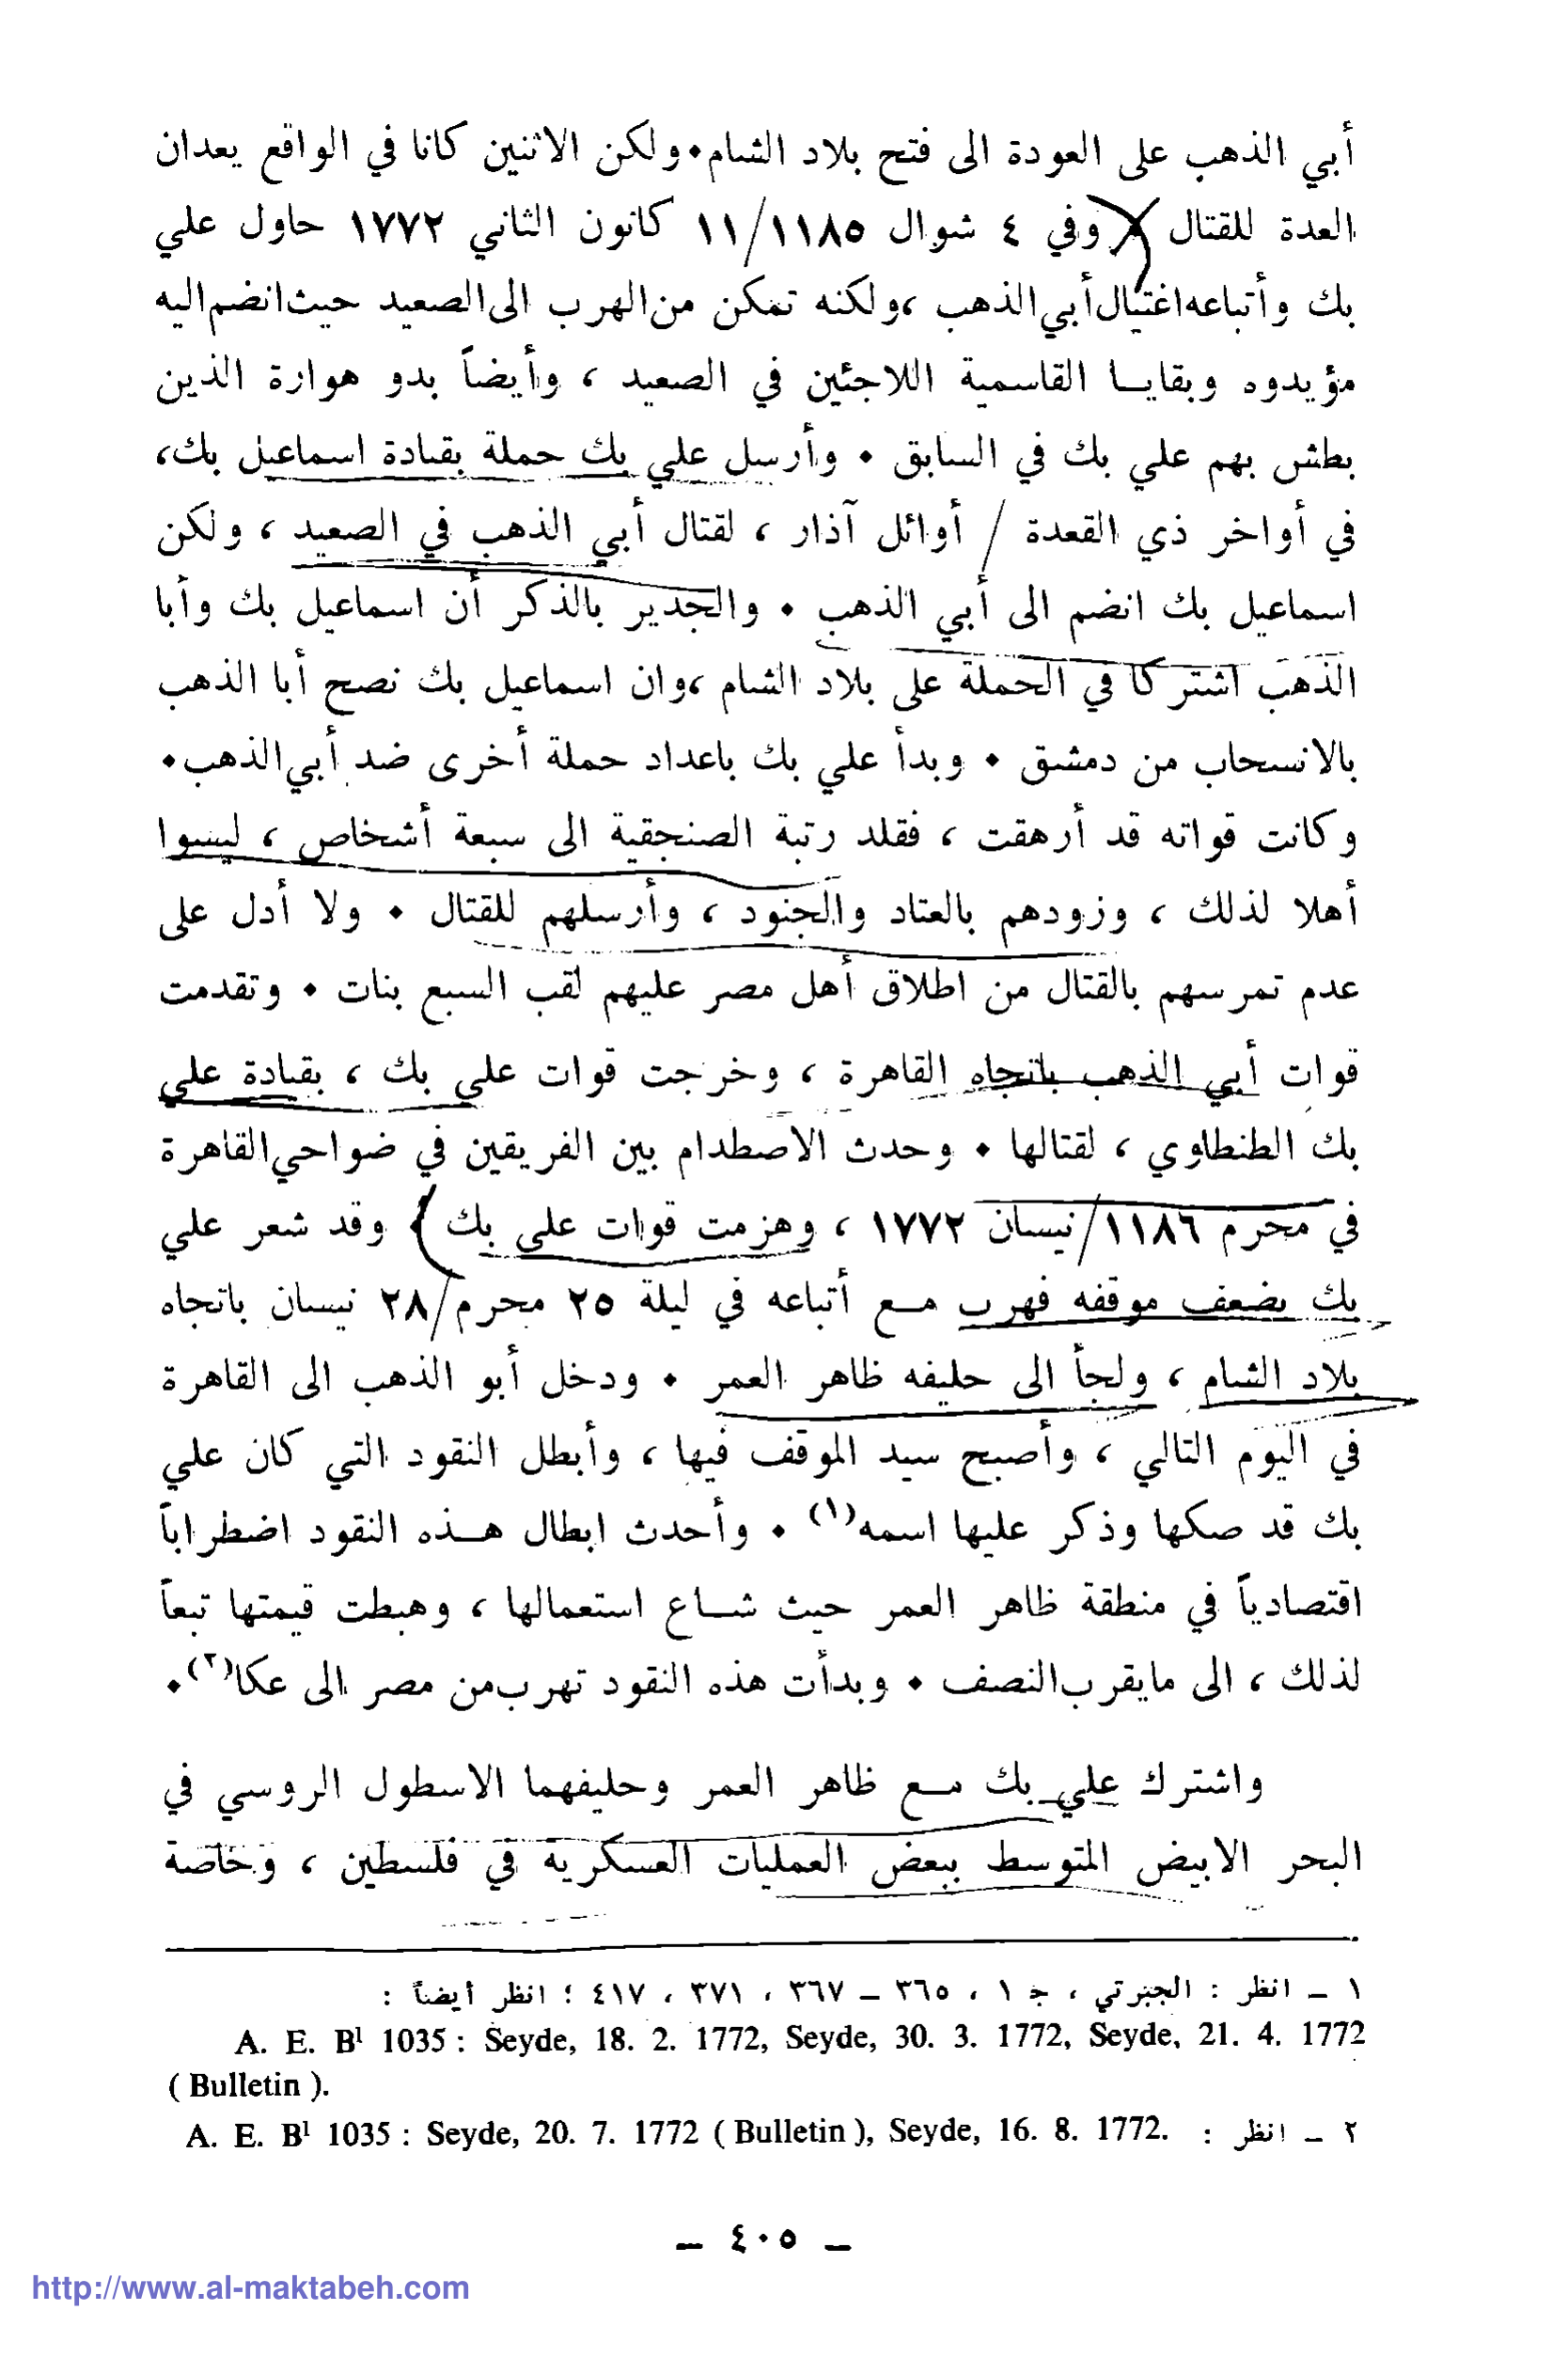 أبي الذهب على العودة الى فتح بلاد الشام ٠ ولكن الاثنين كانا في الواقع يعدان
العدة للقتال ٠ وفي ٤ شوال ١١٨٥/١١ كانون الثاني ١٧٧٢ حاول علي
بك وأتباعه اغتيال أبي الذهب ، ولكنه تمكن من الهرب الى الصعيد حيث انضم اليه
مؤيدوه وبقايا القاسمية اللاجئين في الصعيد ، وأيضاً بدو هوارة الذين
بطش بهم علي بك في السابق ٠ وأرسل علي بك حملة بقيادة اسماعيل بك،
في أواخر ذي القعدة / أوائل آذار ، لقتال أبي الذهب في الصعيد ، ولكن
اسماعيل بك انضم الى أبي الذهب ٠ والجدير بالذكر أن اسماعيل بك وأبا
الذهب اشتركا في الحملة على بلاد الشام ، وان اسماعيل بك نصح أبا الذهب
بالانسحاب من دمشق ٠ وبدأ علي بك باعداد حملة أخرى ضد أبي الذهب ٠
وكانت قواته قد أرهقت ، فقلد رتبة الصنجقية الى سبعة أشخاص ، ليسوا
أهلا لذلك ، وزودهم بالعتاد والجنود ، وأرسلهم للقتال ٠ ولا أدل على
عدم تمرسهم بالقتال من اطلاق أهل مصر عليهم لقب السبع بنات ٠ وتقدمت
قوات أبي الذهب باتجاه القاهرة ، وخرجت قوات علي بك ، بقيادة علي
بك الطنطاوي ، لقتالها ٠ وحدث الاصطدام بين الفريقين في ضواحي القاهرة
في محرم ١١٨٦/نيسان ١٧٧٢ ، وهزمت قوات علي بك ٠ وقد شعر علي
بك بضعف موقفه فهرب مع أتباعه في ليلة ٢٥ محرم/٢٨ نيسان باتجاه
بلاد الشام ، ولجأ الى حليفه ظاهر العمر ٠ ودخل أبو الذهب الى القاهرة
في اليوم التالي ، وأصبح سيد الموقف فيها ، وأبطل النقود التي كان علي
بك قد صكها وذكر عليها اسمه(١) ٠ وأحدث ابطال هذه النقود اضطراباً
اقتصادياً في منطقة ظاهر العمر حيث شاع استعمالها ، وهبطت قيمتها تبعاً
لذلك ، الى مايقرب النصف ٠ وبدأت هذه النقود تهرب من مصر الى عكا(٢)٠
واشترك علي بك مع ظاهر العمر وحليفهما الاسطول الروسي في
البحر الابيض المتوسط ببعض العمليات العسكرية في فلسطين ، وخاصة
١ – انظر : الجبرتي ، ج ١ ، ٣٦٥ – ٣٦٧ ، ٣٧١ ، ٤١٧ ؛ انظر أيضاً :
A. E. B¹ 1035 : Seyde, 18. 2. 1772, Seyde, 30. 3. 1772, Seyde, 21. 4. 1772
( Bulletin ).
٢ – انظر : A. E. B¹ 1035 : Seyde, 20. 7. 1772 ( Bulletin ), Seyde, 16. 8. 1772.
– ٤٠٥ –
http://www.al-maktabeh.com